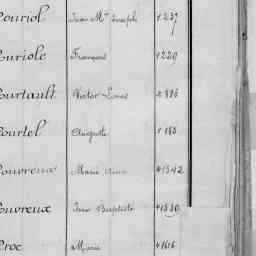 Pouriol Jean Mie Joseph 1237
Pouriole François 1229
Pourtault Victor Louis 2886
Pourtel Auguste 1183
Pouvreux Marie Anne 1542
Pouvreux Jean Baptiste 1530
Proc Marie 1616